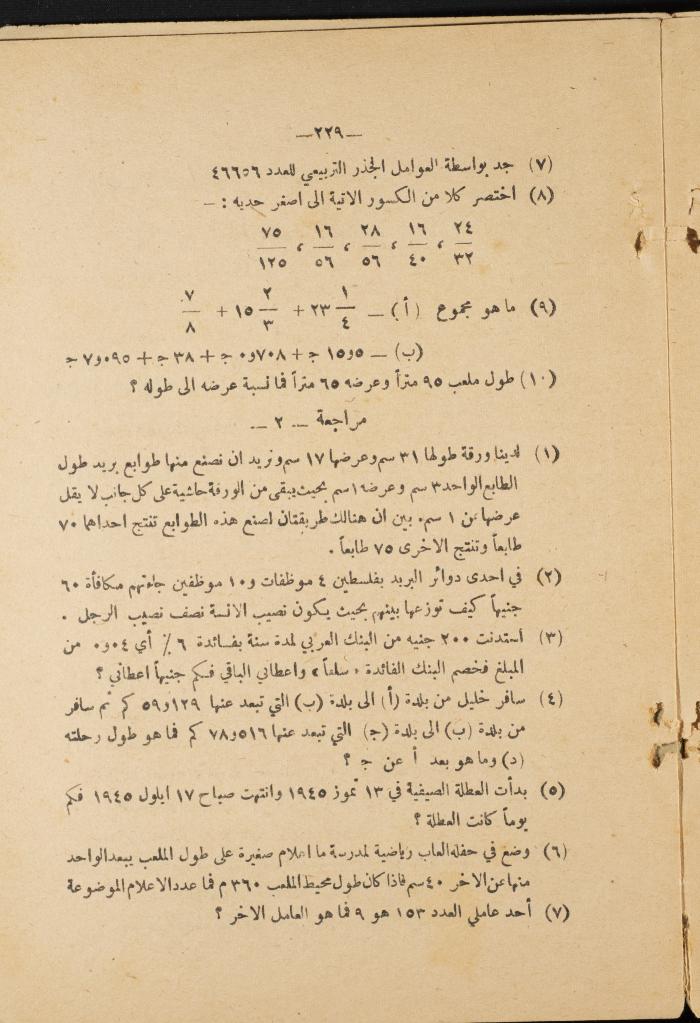 —٢٢٩—
(٧) جد بواسطة العوامل الجذر التربيعي للعدد ٤٦٦٥٦
(٨) اختصر كلا من الكسور الاتية الى اصغر حديه : —
٢٤/٣٢ ، ١٦/٤٠ ، ٢٨/٥٦ ، ١٦/٥٦ ، ٧٥/١٢٥
(٩) ما هو مجموع (أ) — ٢٣ ١/٤ + ١٥ ٢/٣ + ٧/٨
(ب) — ٥و١٥ ج + ٧٠٨و٠ ج + ٣٨ ج + ٠٩٥و٧ ج
(١٠) طول ملعب ٩٥ متراً وعرضه ٦٥ متراً فما نسبة عرضه الى طوله ؟
مراجعة — ٢ —
(١) لدينا ورقة طولها ٣١ سم وعرضها ١٧ سم ونريد ان نصنع منها طوابع بريد طول
الطابع الواحد ٣ سم وعرضه ٢ سم بحيث يبقى من الورقة حاشية على كل جانب لا يقل
عرضها عن ١ سم. بين ان هنالك طريقتان لصنع هذه الطوابع تنتج احداهما ٧٠
طابعاً وتنتج الاخرى ٧٥ طابعاً .
(٢) في احدى دوائر البريد بفلسطين ٤ موظفات و ١٠ موظفين جاءتهم مكافأة ٦٠
جنيهاً كيف توزعها بينهم بحيث يكون نصيب الانسة نصف نصيب الرجل .
(٣) استدنت ٢٠٠ جنيه من البنك العربي لمدة سنة بفائدة ٦ ٪ أي ٠٤و٠ من
المبلغ فخصم البنك الفائدة « سلفاً » واعطاني الباقي فكم جنيهاً اعطاني ؟
(٤) سافر خليل من بلدة (أ) الى بلدة (ب) التي تبعد عنها ١٢٩و٥٩ كم ثم سافر
من بلدة (ب) الى بلدة (ج) التي تبعد عنها ٥١٦و٧٨ كم فما هو طول رحلته
(د) وما هو بعد أ عن ج ؟
(٥) بدأت العطلة الصيفية في ١٣ تموز ١٩٤٥ وانتهت صباح ١٧ ايلول ١٩٤٥ فكم
يوماً كانت العطلة ؟
(٦) وضع في حفله العاب رياضية لمدرسة ما اعلام صغيرة على طول الملعب يبعد الواحد
منها عن الاخر ٤٠ سم فاذا كان طول محيط الملعب ٣٦٠ م فما عدد الاعلام الموضوعة
(٧) أحد عاملي العدد ١٥٣ هو ٩ فما هو العامل الاخر ؟